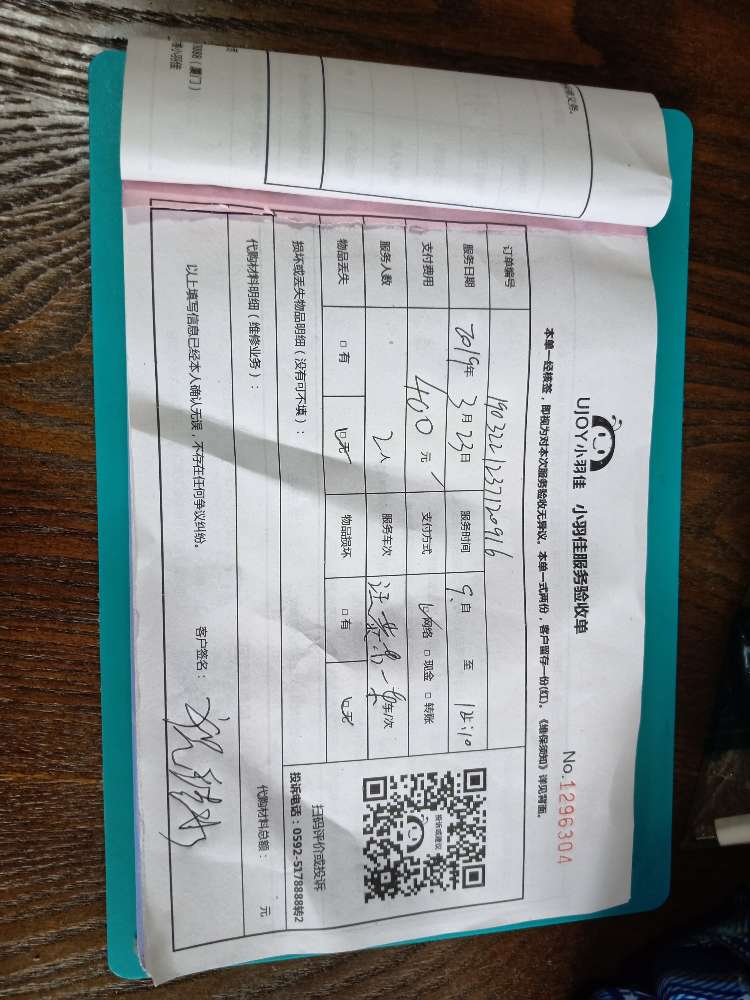 UJOY小羽佳 小羽佳服务验收单
No.1296304
本单一经核签，即视为对本次服务验收无异议。本单一式两份，客户留存一份(红)。《维保须知》详见背面。
订单编号 1903221237120916
服务日期 2019年3月23日 服务时间 9:自 至 12:10
支付费用 400元 支付方式 ☑网络 □现金 □转账
服务人数 2人 服务车次 车/次
物品丢失 □有 ☑无 物品损坏 □有 ☑无
损坏或丢失物品明细（没有可不填）：
代购材料明细（维修业务）：
代购材料总额： 元
以上填写信息已经本人确认无误，不存在任何争议纠纷。
客户签名：
投诉或建议
扫码评价或投诉
投诉电话：0592-5178888转2
（厦门）
小羽佳